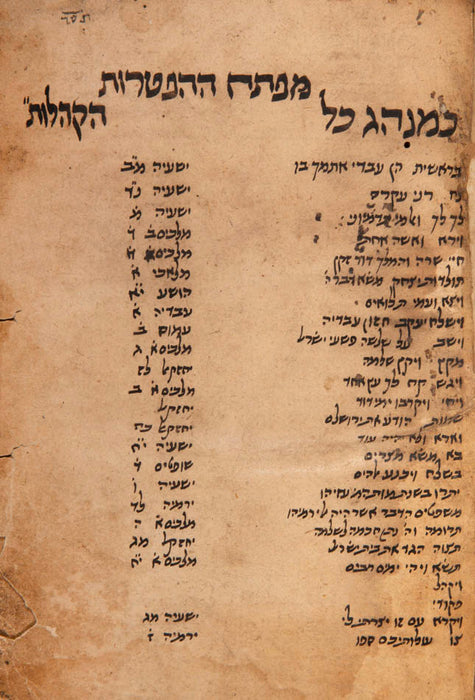 מפתח ההפטרות
כמנהג כל הקהלות
בראשית הן עבדי אתמך בו ישעיה מ״ב
נח רני עקרה ישעיה נ״ד
לך לך ואמי תדמיוני ישעיה מ
וירא ואשה אחת מלכים ב ד
חיי שרה והמלך דוד זקן מלכים א א
תולדות יצחק משא דבר ה׳ מלאכי א
ויצא ועמי תלואים הושע י״א
וישלח יעקב חזון עבדיה עבדיה א
וישב על שלשה פשעי ישראל עמוס ב
מקץ ויקץ שלמה מלכים א ג
ויגש קח לך עץ אחד יחזקאל לז
ויחי ויקרבו ימי דוד מלכים א ב
שמות הודע את ירושלם יחזקאל
וארא ולא יהיה עוד יחזקאל כח
בא משא מצרים ישעיה י״ח
בשלח ויכנע אלהים שופטים ד
יתרו בשנת מות המ׳ עזיהו ישעיה ו
משפטים הדבר אשר היה לירמיהו ירמיה לד
תרומה וה׳ נתן חכמה לשלמה מלכים א ה
תצוה הגד את בית ישראל יחזקאל מג
תשא ויהי ימים רבים מלכים א י״ח
ויקהל
פקודי
ויקרא עם זו יצרתי לי ישעיה מג
צו עולותיכם ספו ירמיה ז